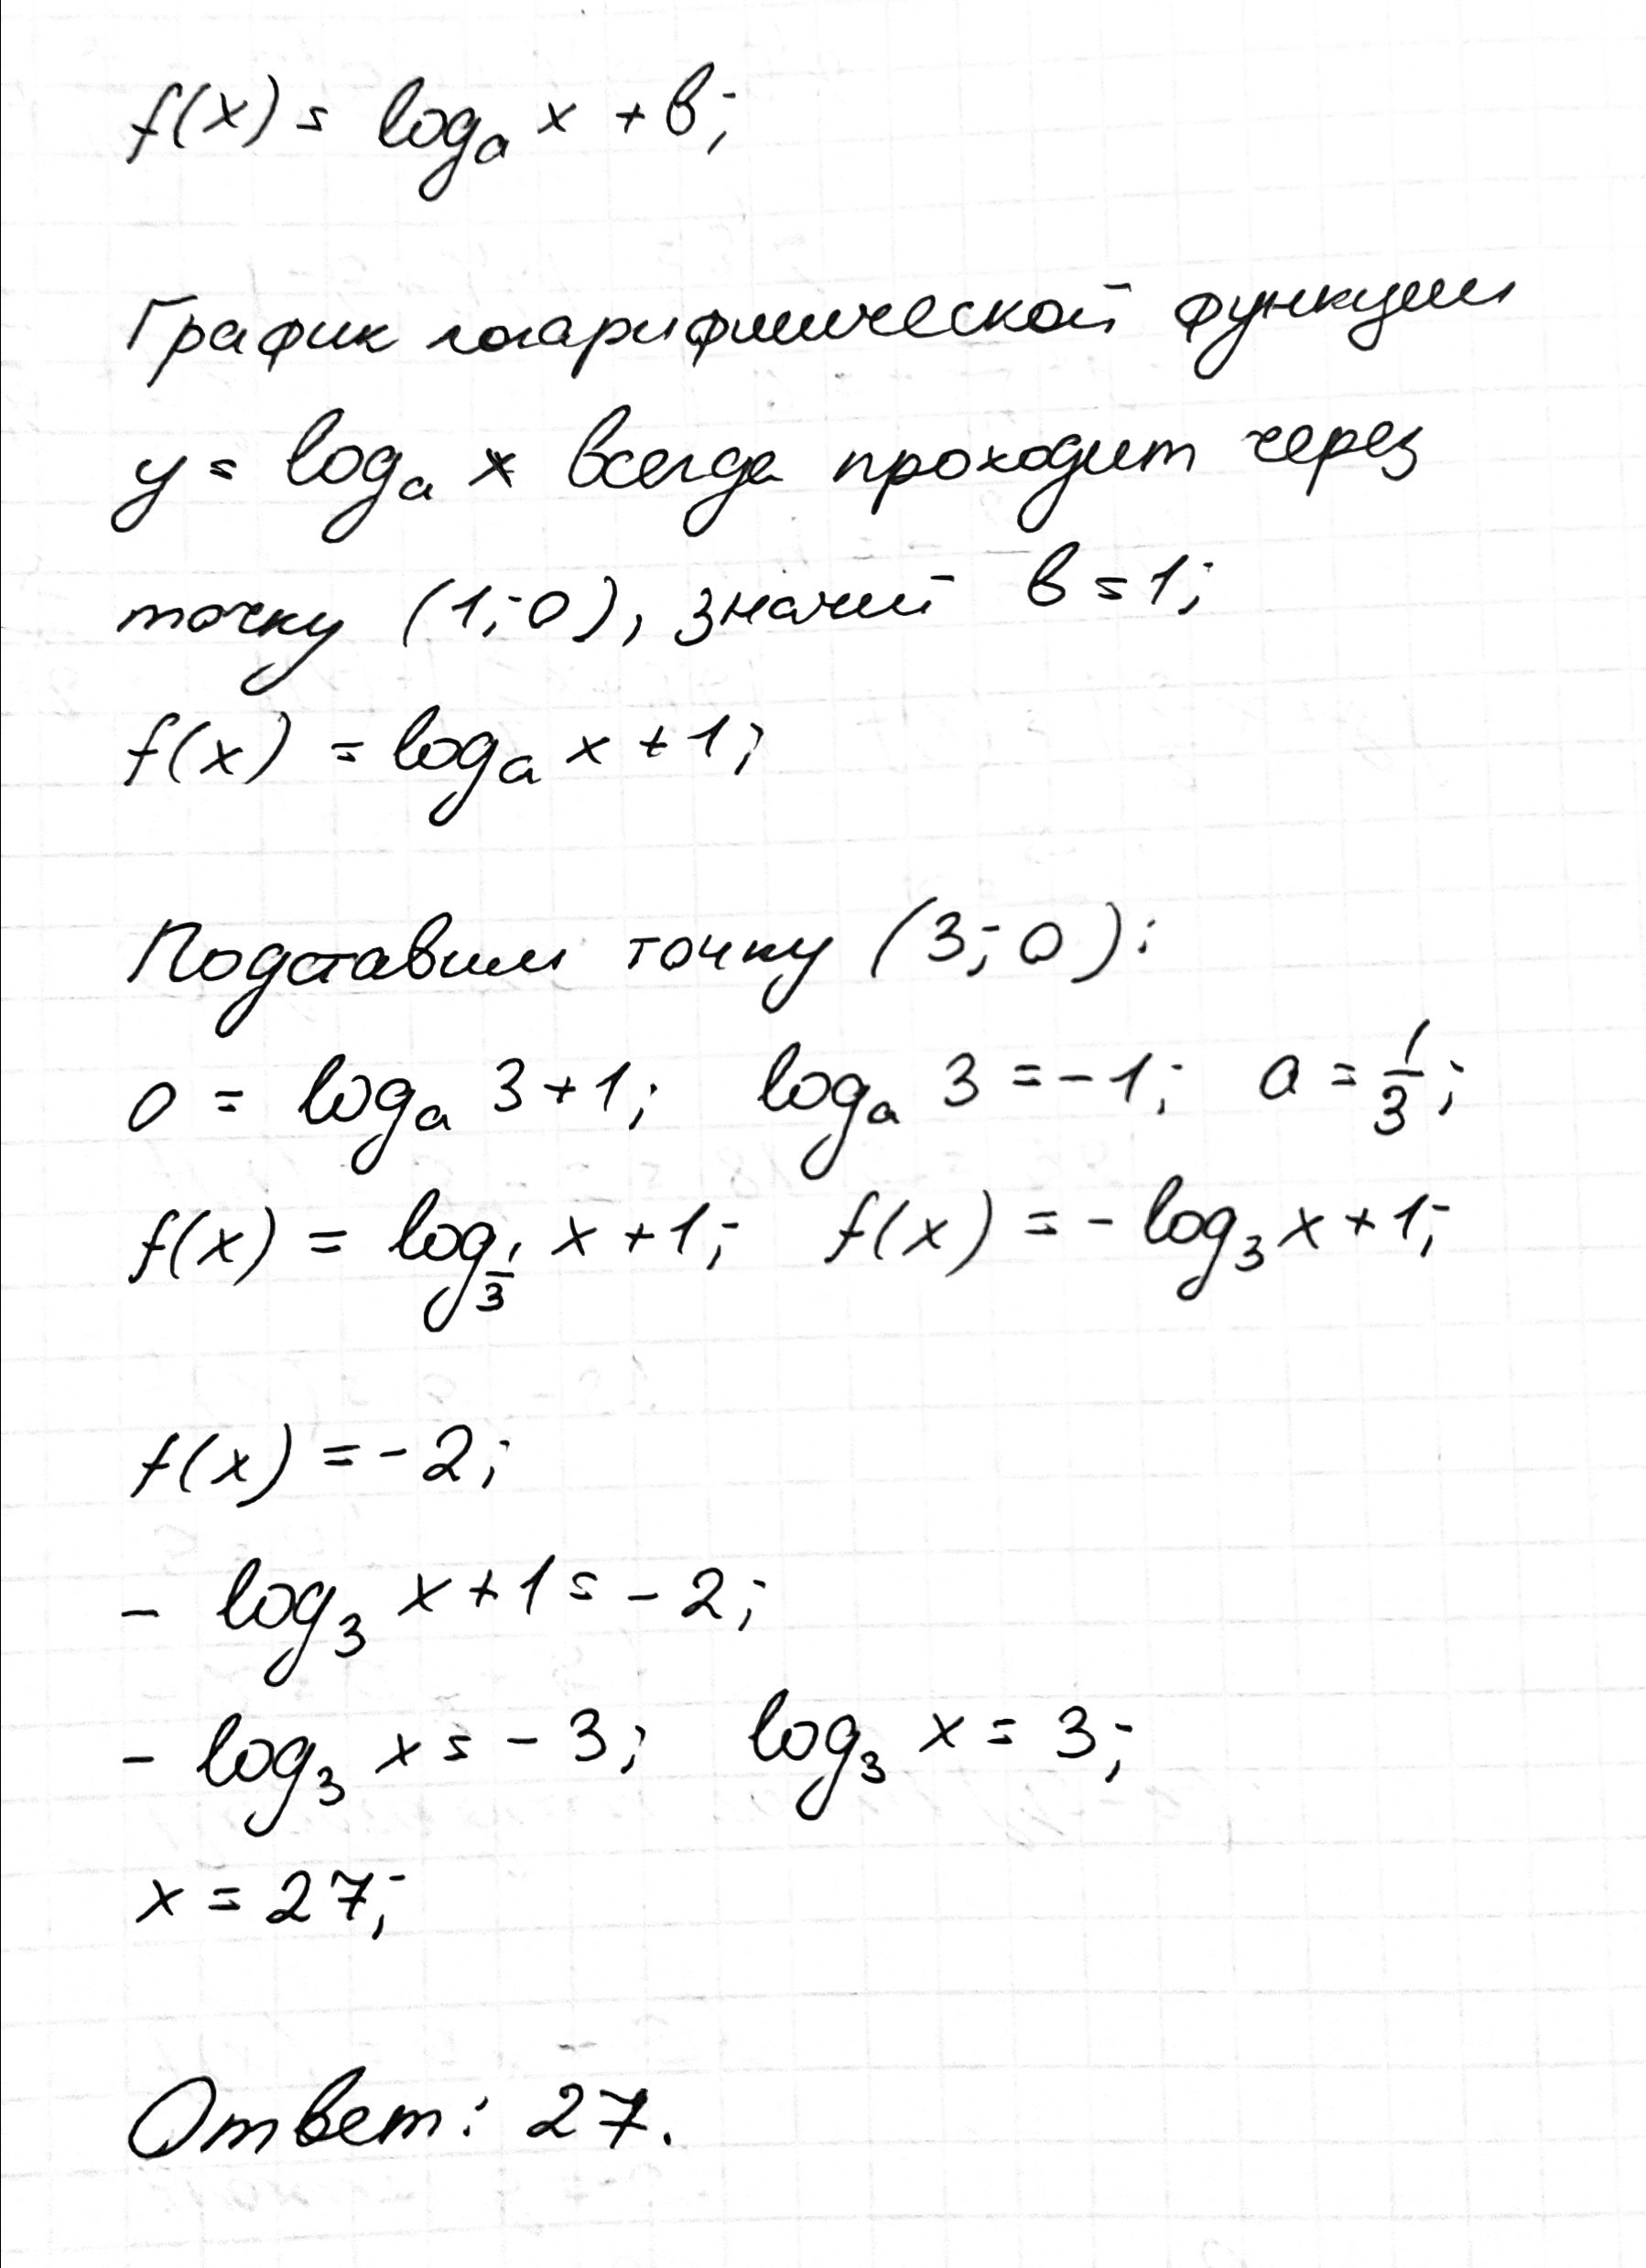 f(x) = logₐ x + b;
График логарифмической функции
y = logₐ x всегда проходит через
точку (1; 0), значит b = 1;
f(x) = logₐ x + 1;
Подставим точку (3; 0):
0 = logₐ 3 + 1; logₐ 3 = -1; a = 1/3;
f(x) = log_{1/3} x + 1; f(x) = - log₃ x + 1;
f(x) = -2;
- log₃ x + 1 = -2;
- log₃ x = -3; log₃ x = 3;
x = 27;
Ответ: 27.